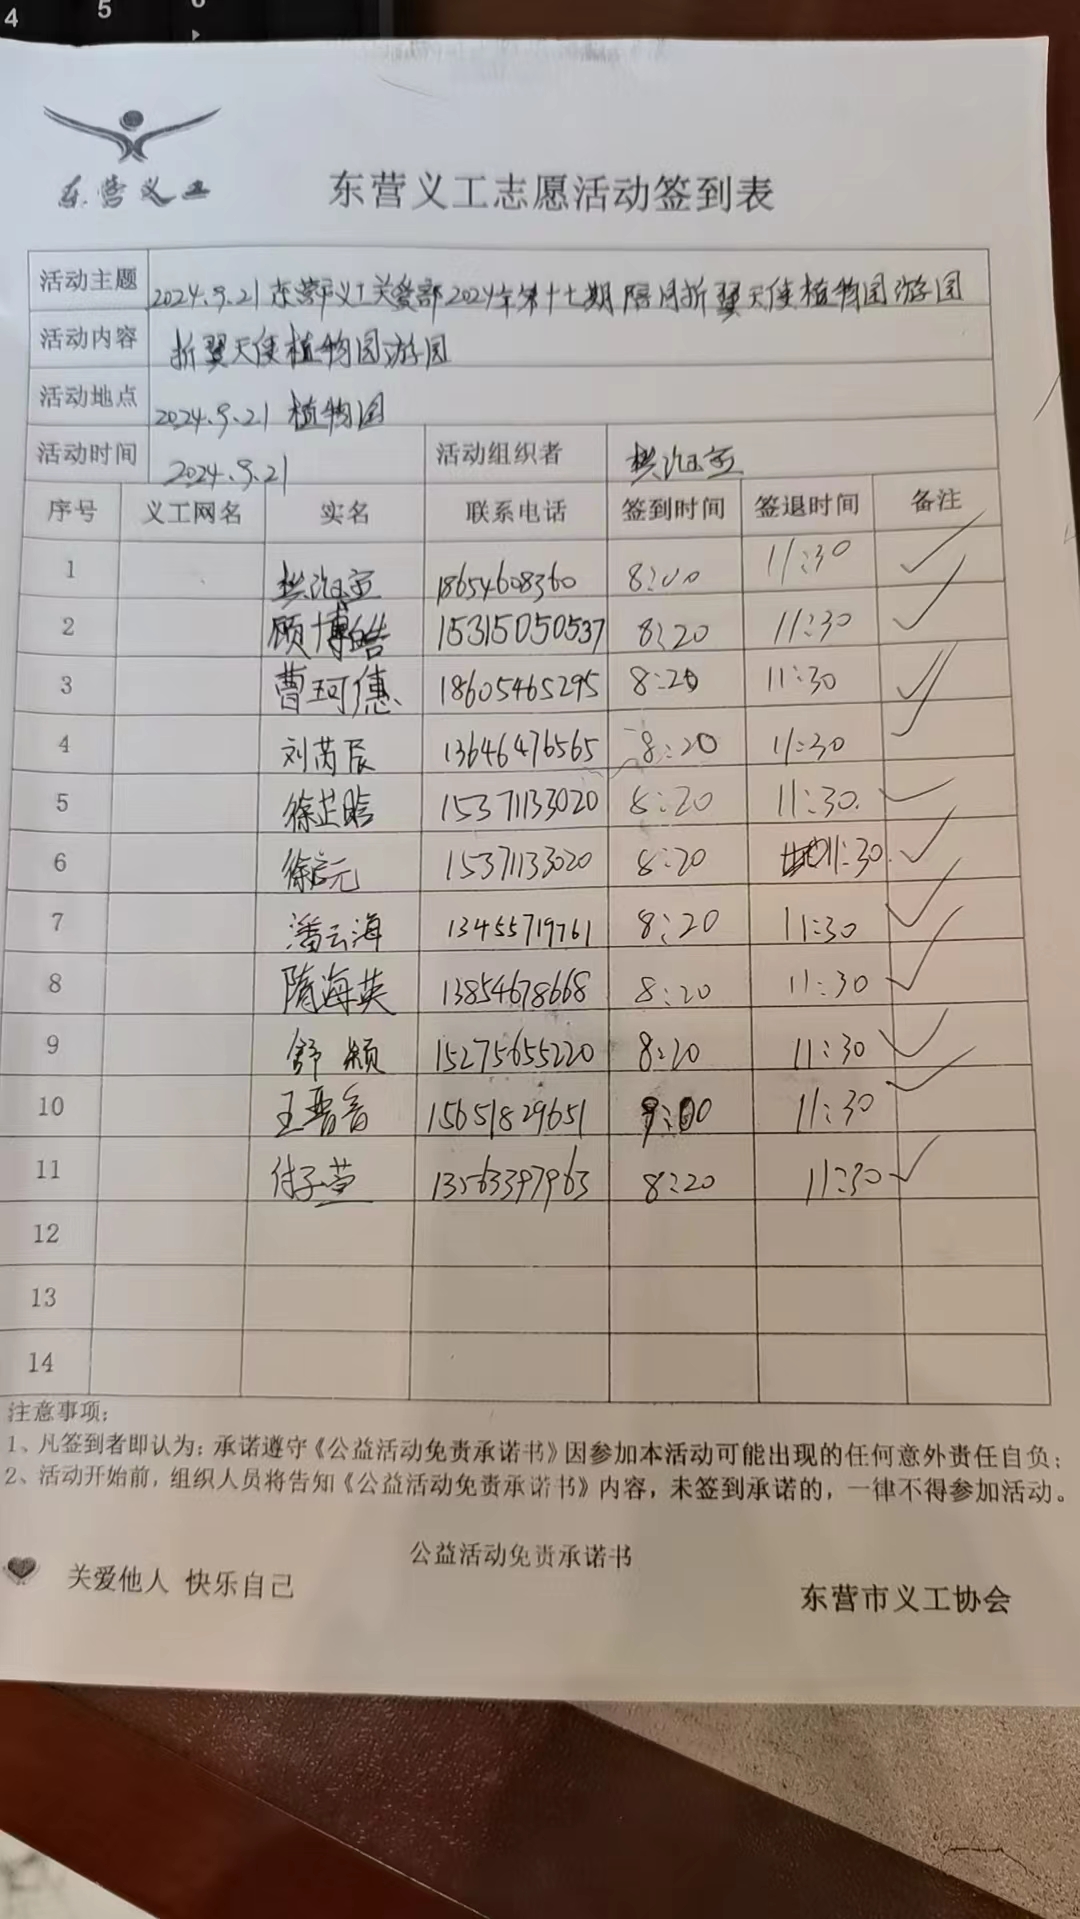 4 5
东营义工
东营义工志愿活动签到表
活动主题 2024.9.21东营市义工关爱部2024年第十七期陪同折翼天使植物园游园
活动内容 折翼天使植物园游园
活动地点 2024.9.21 植物园
活动时间 2024.9.21 活动组织者
序号 义工网名 实名 联系电话 签到时间 签退时间 备注
1 18654608360 8:00 11:30 ✓
2 顾博皓 15315050537 8:20 11:30 ✓
3 曹珂僡 18605465295 8:20 11:30 ✓
4 刘芮辰 13646476565 8:20 11:30 ✓
5 徐芷晗 15371133020 8:20 11:30. ✓
6 徐启元 15371133020 8:20 11:30. ✓
7 潘云海 13455719761 8:20 11:30 ✓
8 隋海英 13854678668 8:20 11:30 ✓
9 舒颖 15275655220 8:20 11:30 ✓
10 15651829651 9:00 11:30 ✓
11 付子萱 13563397963 8:20 11:30 ✓
12
13
14
注意事项:
1、凡签到者即认为:承诺遵守《公益活动免责承诺书》因参加本活动可能出现的任何意外责任自负;
2、活动开始前,组织人员将告知《公益活动免责承诺书》内容,未签到承诺的,一律不得参加活动。
公益活动免责承诺书
关爱他人 快乐自己
东营市义工协会